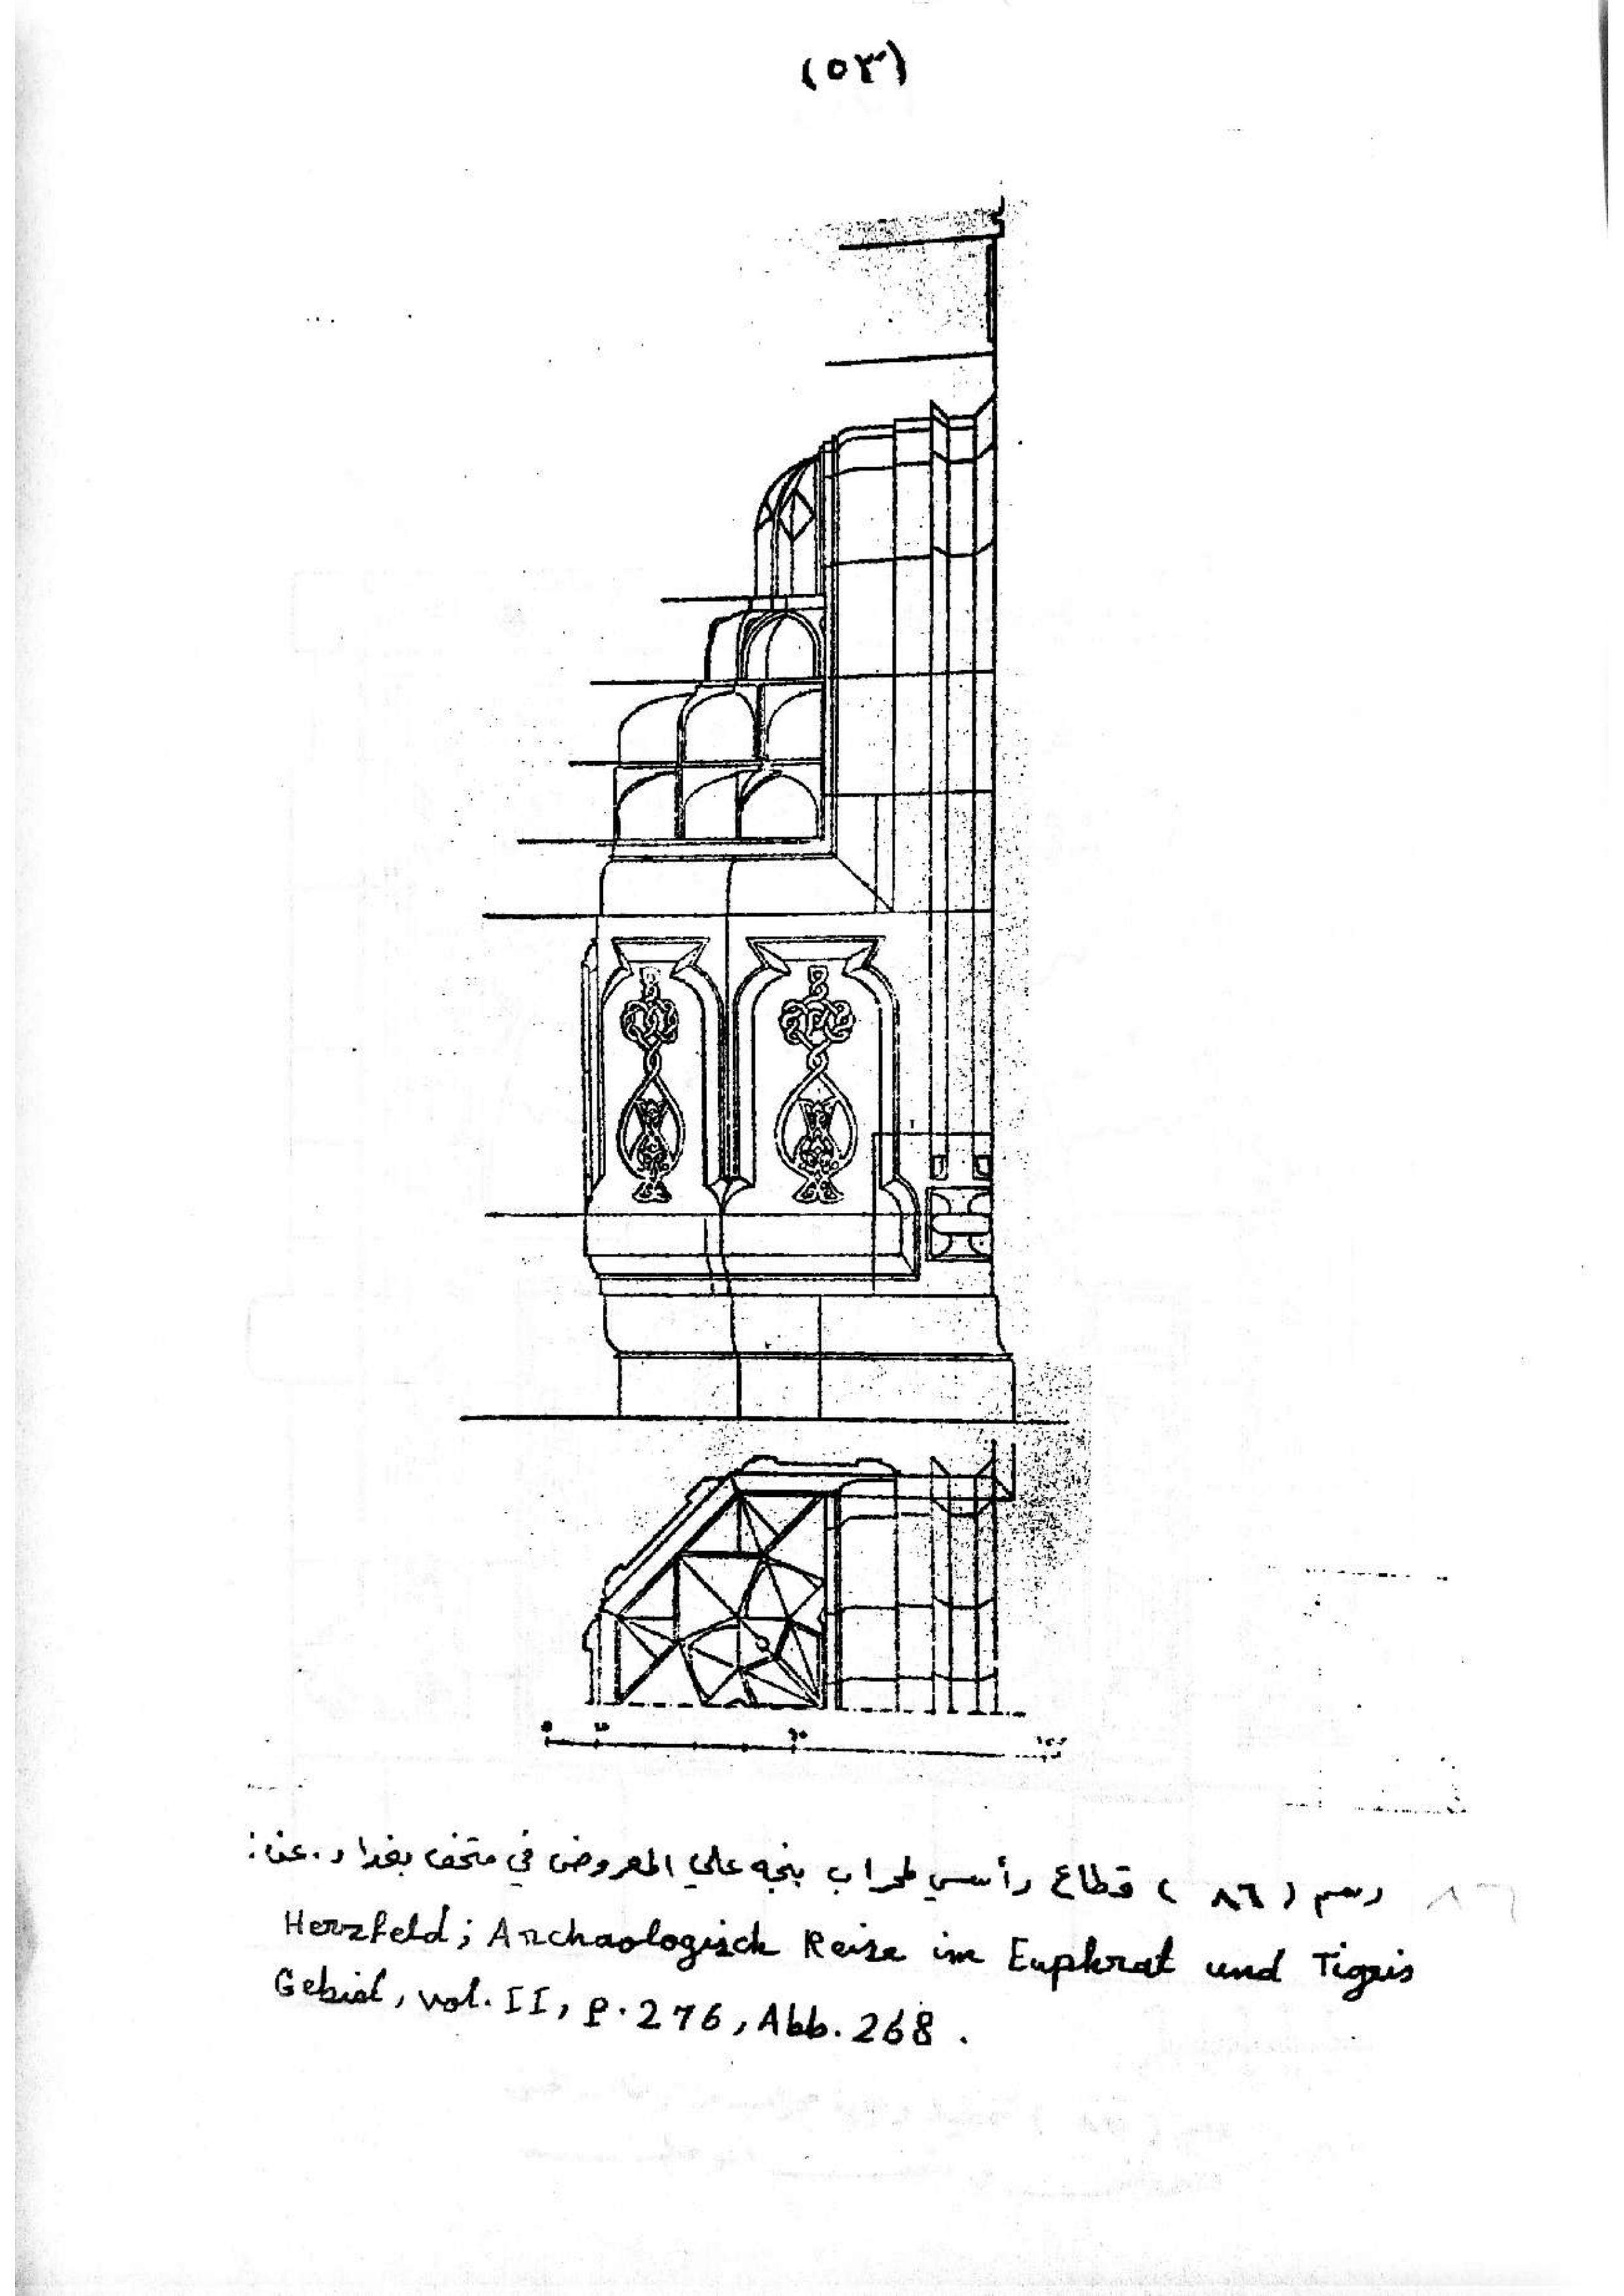 (٥٣)
رسم (٨٦) قطاع رأسي لمحراب پنجه علي المعروض في متحف بغداد. عن:
Herzfeld; Archaologisch Reise im Euphrat und Tigris
Gebiet, vol. II, p. 276, Abb. 268.